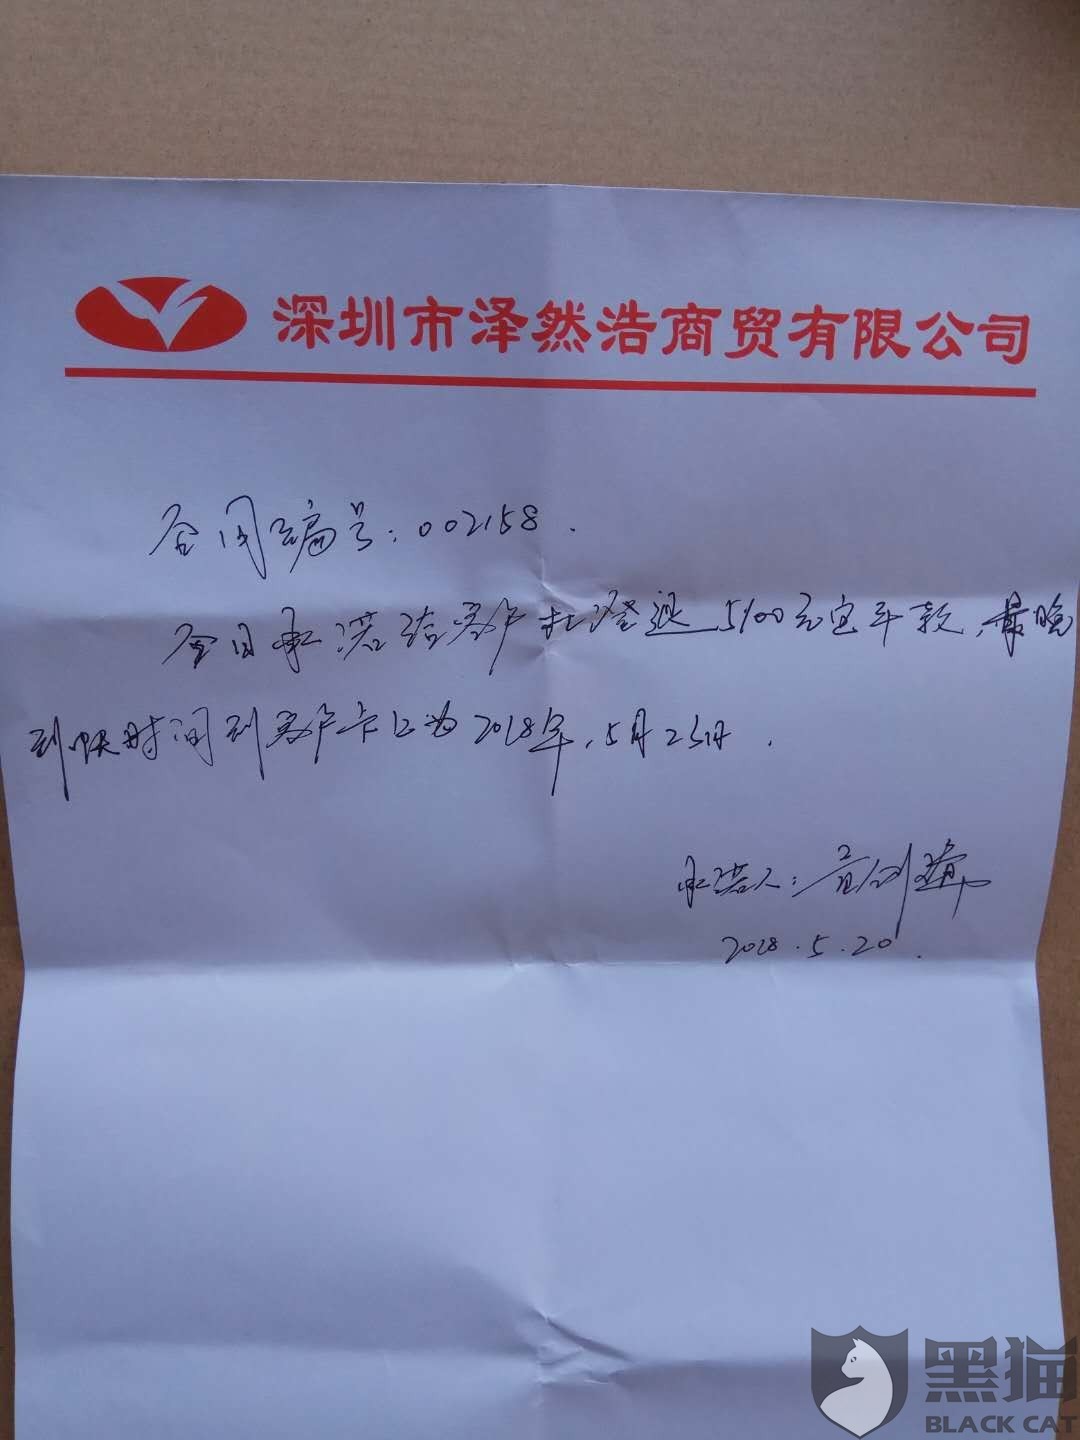 深圳市泽然浩商贸有限公司
合同编号：002158.
今日承诺给客户杜澄退5100元定车款，最晚
到帐时间到客户卡上为2018年，5月25日.
承诺人：
2018.5.20.
黑猫
BLACK CAT